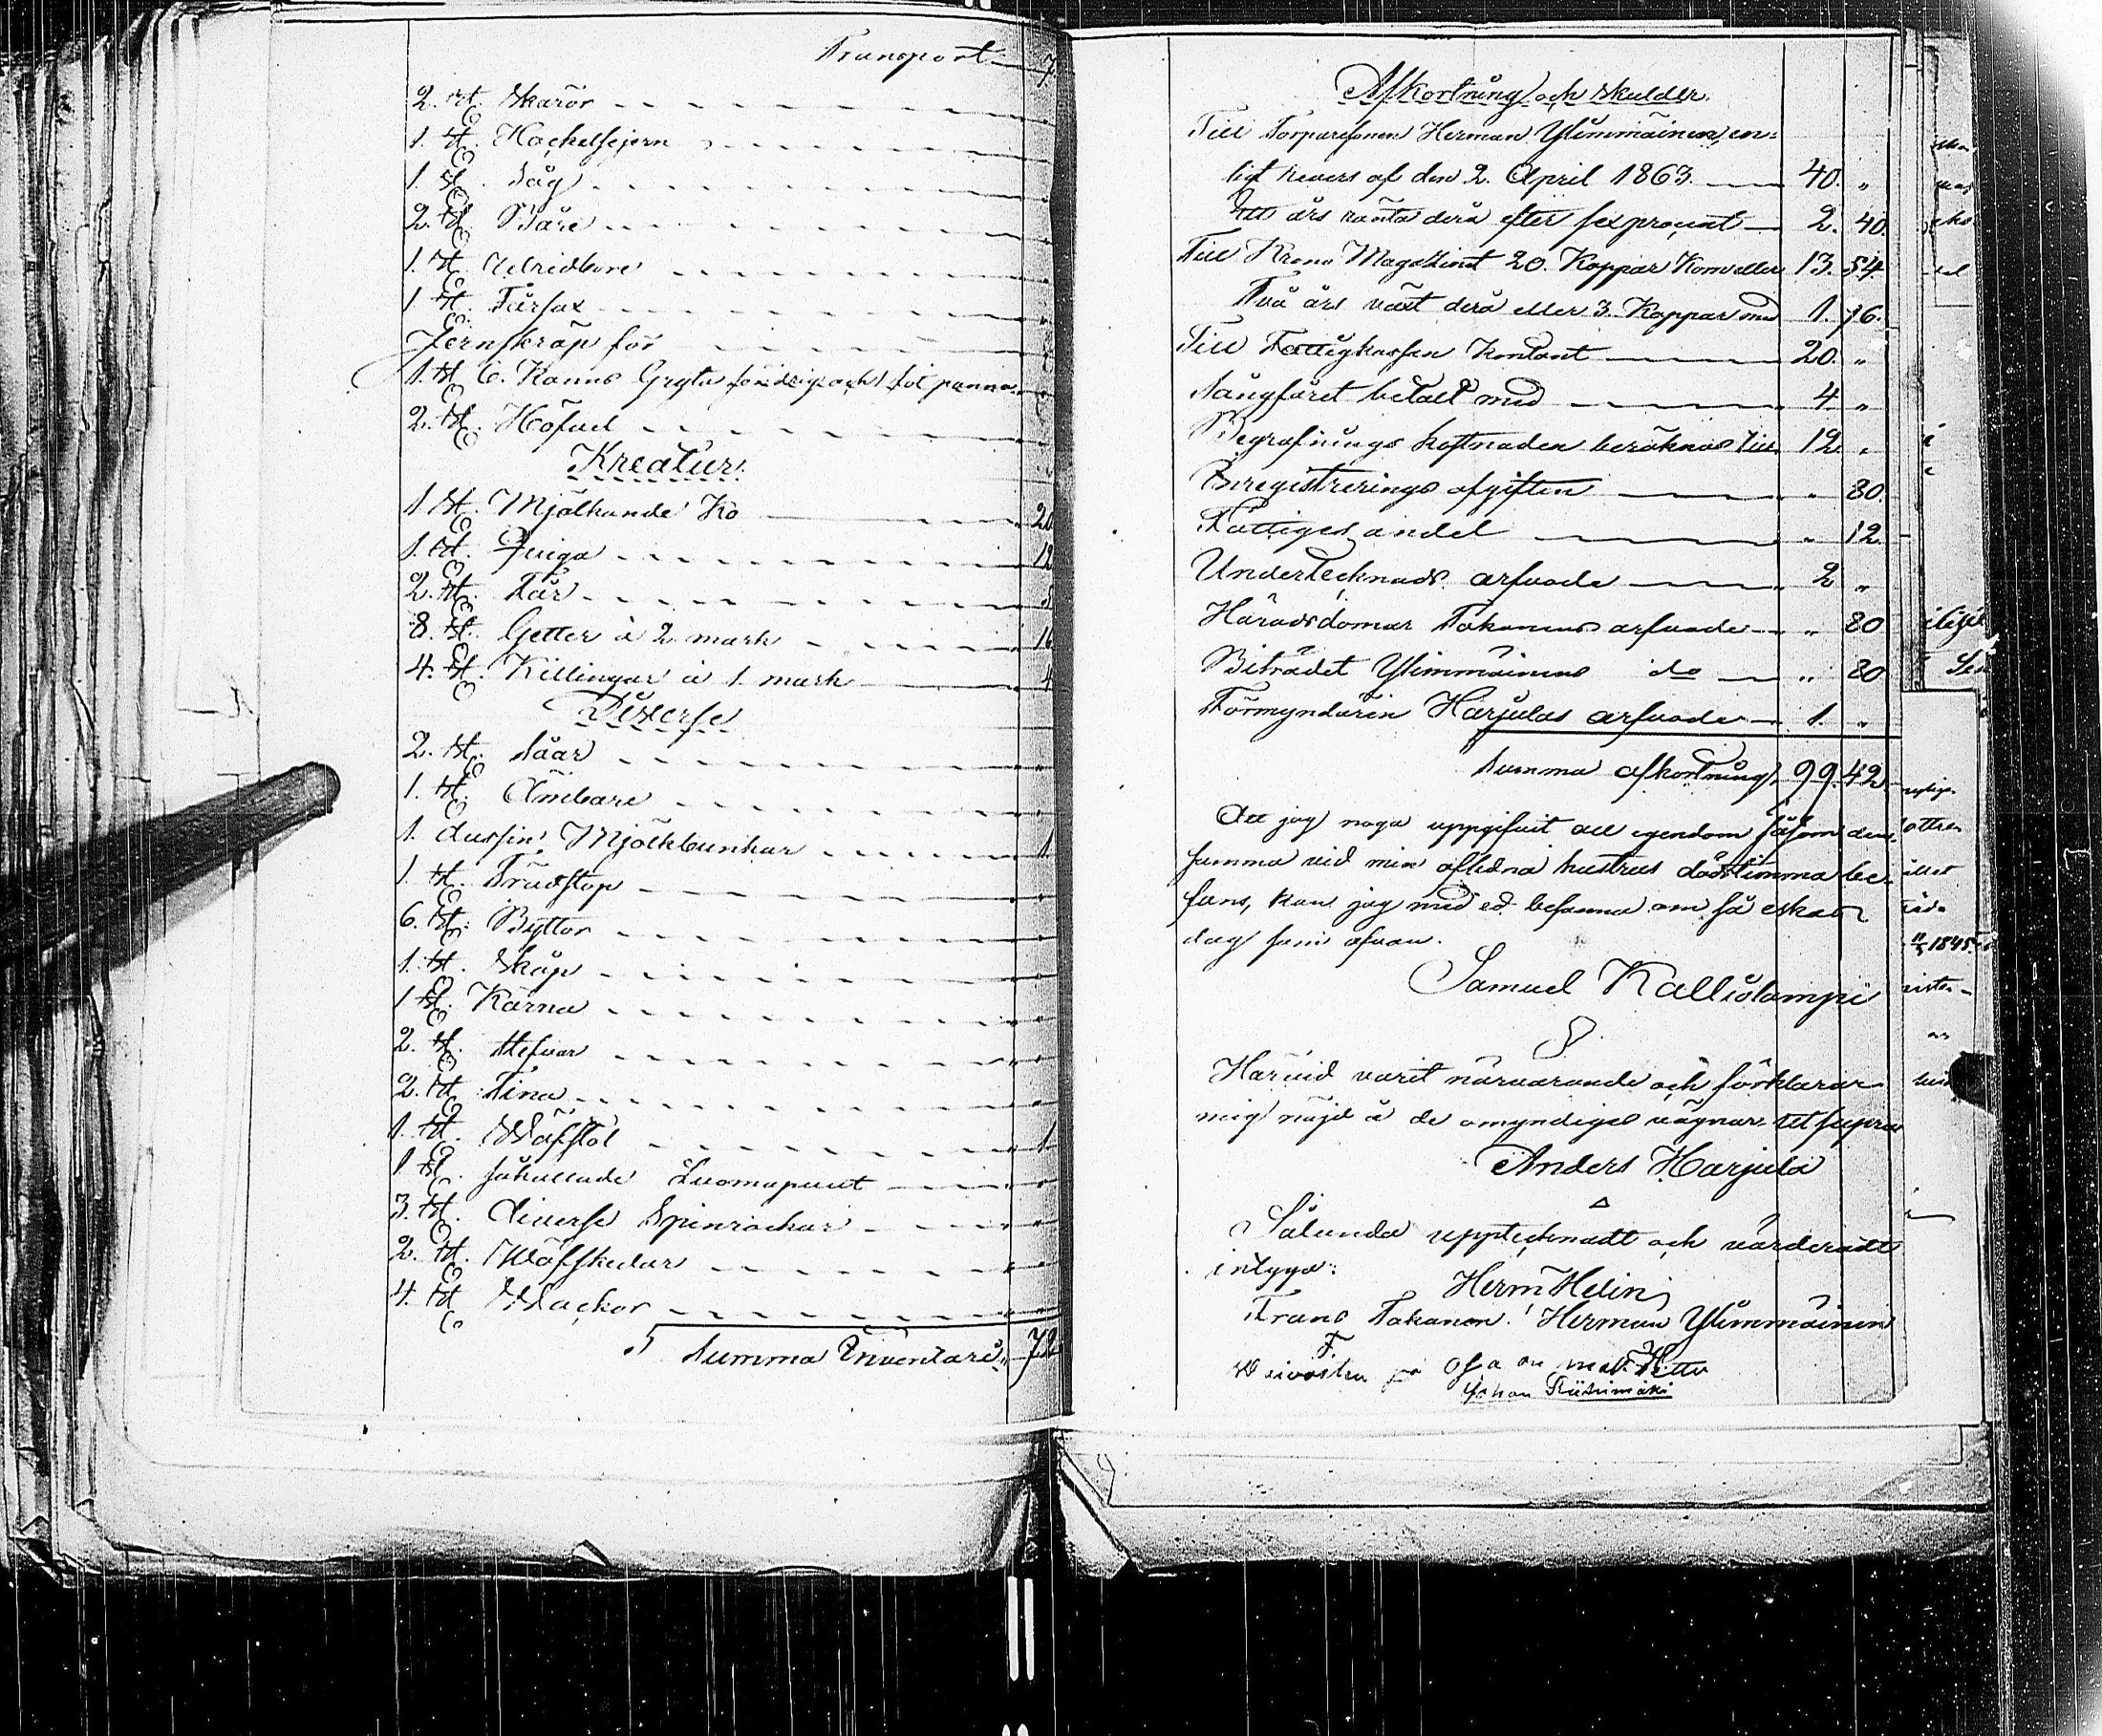 Transport 7
2. st. Skäror
1. st. Hackelsejern
1. st. Såg
2. st. Bäre
1. st. Utridbore
1. st. Fårsax
Jernskrap för
1. st. 6. Kanns Gryta fördeig och 1 fot panna
2. st. Höfvel
Kreatur.
1 st. Mjölkande Ko 20
1. st. Qviga 12
2. st. Får
8. st. Getter à 2 mark 16
4. st. Killingar à 1. mark 4
Diverse
2. st. Såar
1. st. Ämbare
1. dussin Mjölkbunkar 1
1. st. Trädstop
6. st. Byttor
1. st. Skåp
1 st. Kärna
2. st. Stefvar
2. st. Tina
1. st. Wäfstol 1
1 st. såkallade Luomapuut
3. st. diverse Spinrockar
2. st. Wäfskedar
4. st. Wackor
Summa Inventarii 72
Afkortning och skulder.
Till Torparesonen Herman Ylimmäinen, en-
ligt revers af den 2. April 1863. 40. "
Ett års ränta derå efter sex procent 2. 40.
Till Krono Magazinet 20. Kappar Korn eller 13. 54.
Två års växt derå eller 3. Kappar med 1. 76.
Till Fattigkassan Kontant 20. "
Sångfåret betalt med 4 "
Begrafnings kostnaden beräknas till 12. "
Inregistrerings afgiften " 80.
Fattiges andel " 12.
Undertecknads arfvode 2 "
Häradsdomar Takanens arfvode " 80
Biträdet Ylimmäinens do " 80
Förmyndaren Harjulas arfvode 1. "
Summa afkortning 99. 42
Att jag noga uppgifvit all egendom såsom den-
samma vid min aflidna hustrus dödstimma be-
fans, kan jag med ed besanna om så äskas
dag som ofvan.
Samuel Kalliolampi
Härvid varit närvarande och förklarar
mig nöjd å de omyndiges vägnar ut supra
Anders Harjula
Sålunda upptecknadt och värderadt
intyga:
Herm Helin
Frans Takanen. Herman Ylimmäinen
F.
Johan Riihimäki
1845